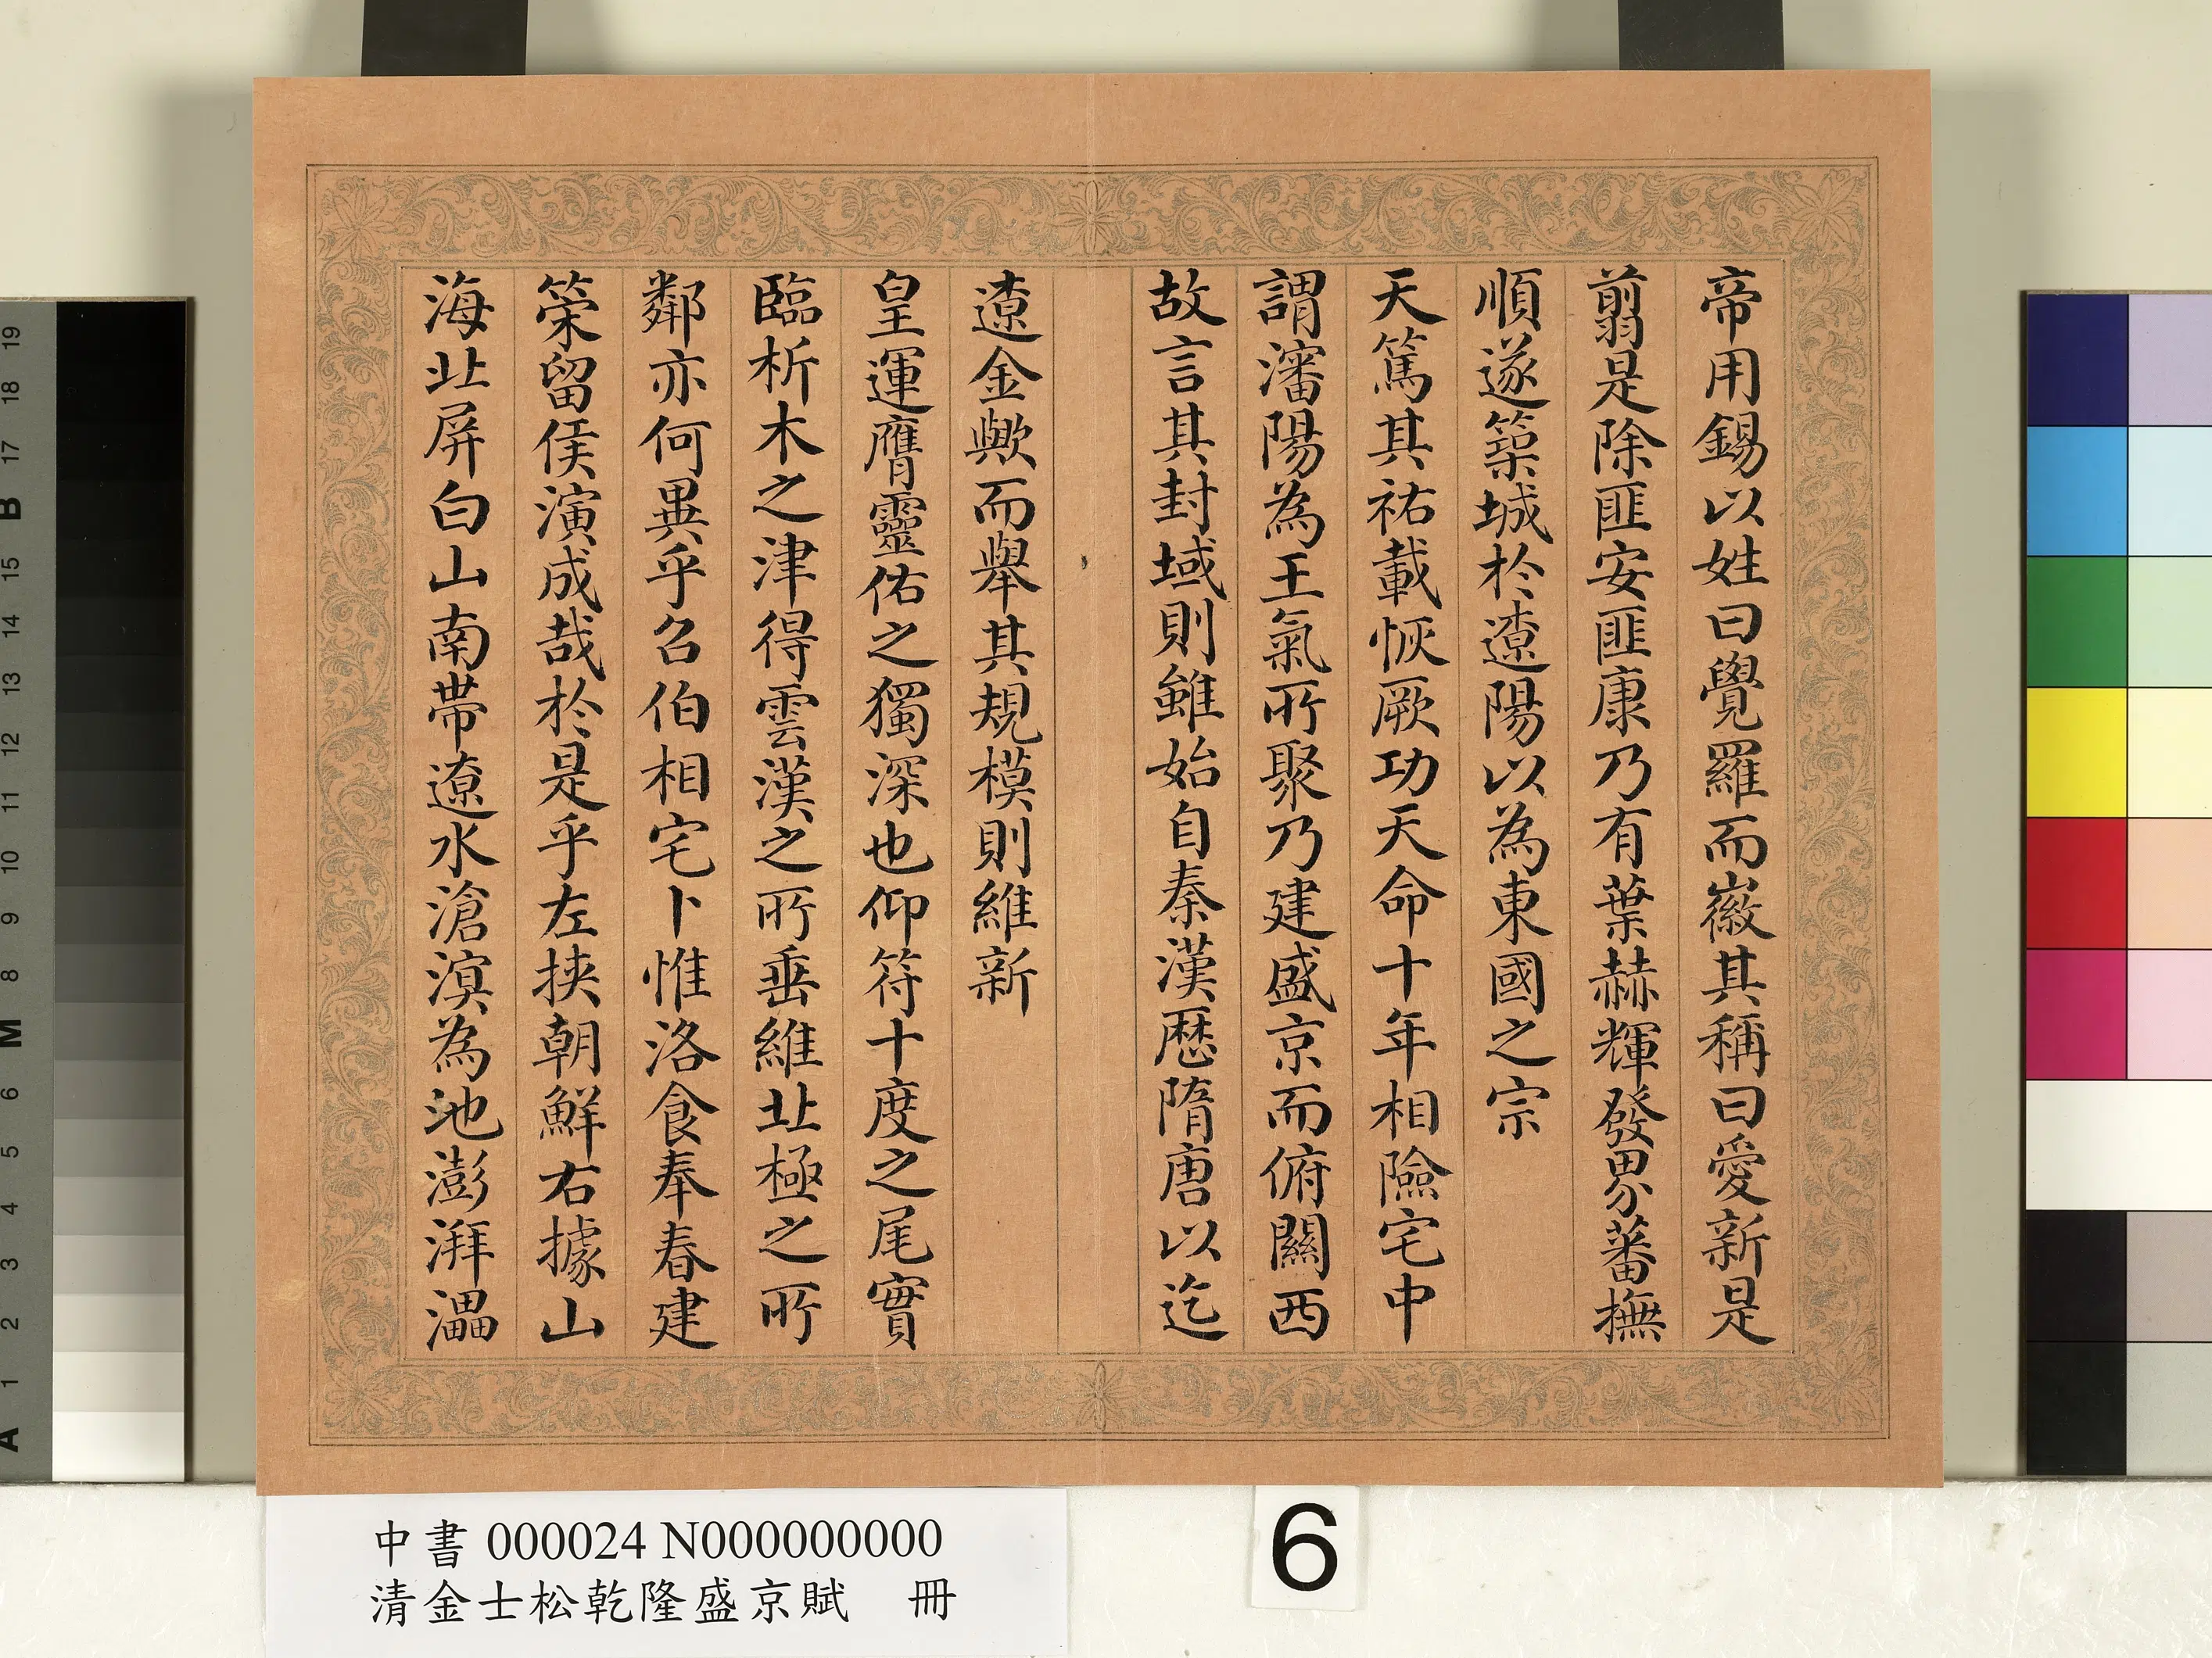 帝用錫以姓曰覺羅而徽其稱曰愛新是
翦是除匪安匪康乃有葉赫輝發界蕃撫
順遂築城於遼陽以為東國之宗
天篤其祜載恢厥功天命十年相險宅中
謂瀋陽為王氣所聚乃建盛京而俯關西
故言其封域則雖始自秦漢歷隋唐以迄
遼金歟而舉其規模則維新
皇運膺靈佑之獨深也仰符十度之尾實
臨析木之津得雲漢之所垂維北極之所
鄰亦何異乎召伯相宅卜惟洛食奉春建
策留侯演成哉於是乎左挾朝鮮右據山
海北屏白山南帶遼水滄溟為池澎湃灅
中書 000024 N000000000
清金士松乾隆盛京賦 冊
6
19
18
17
B
15
14
13
12
11
10
9
8
M
6
5
4
3
2
1
A